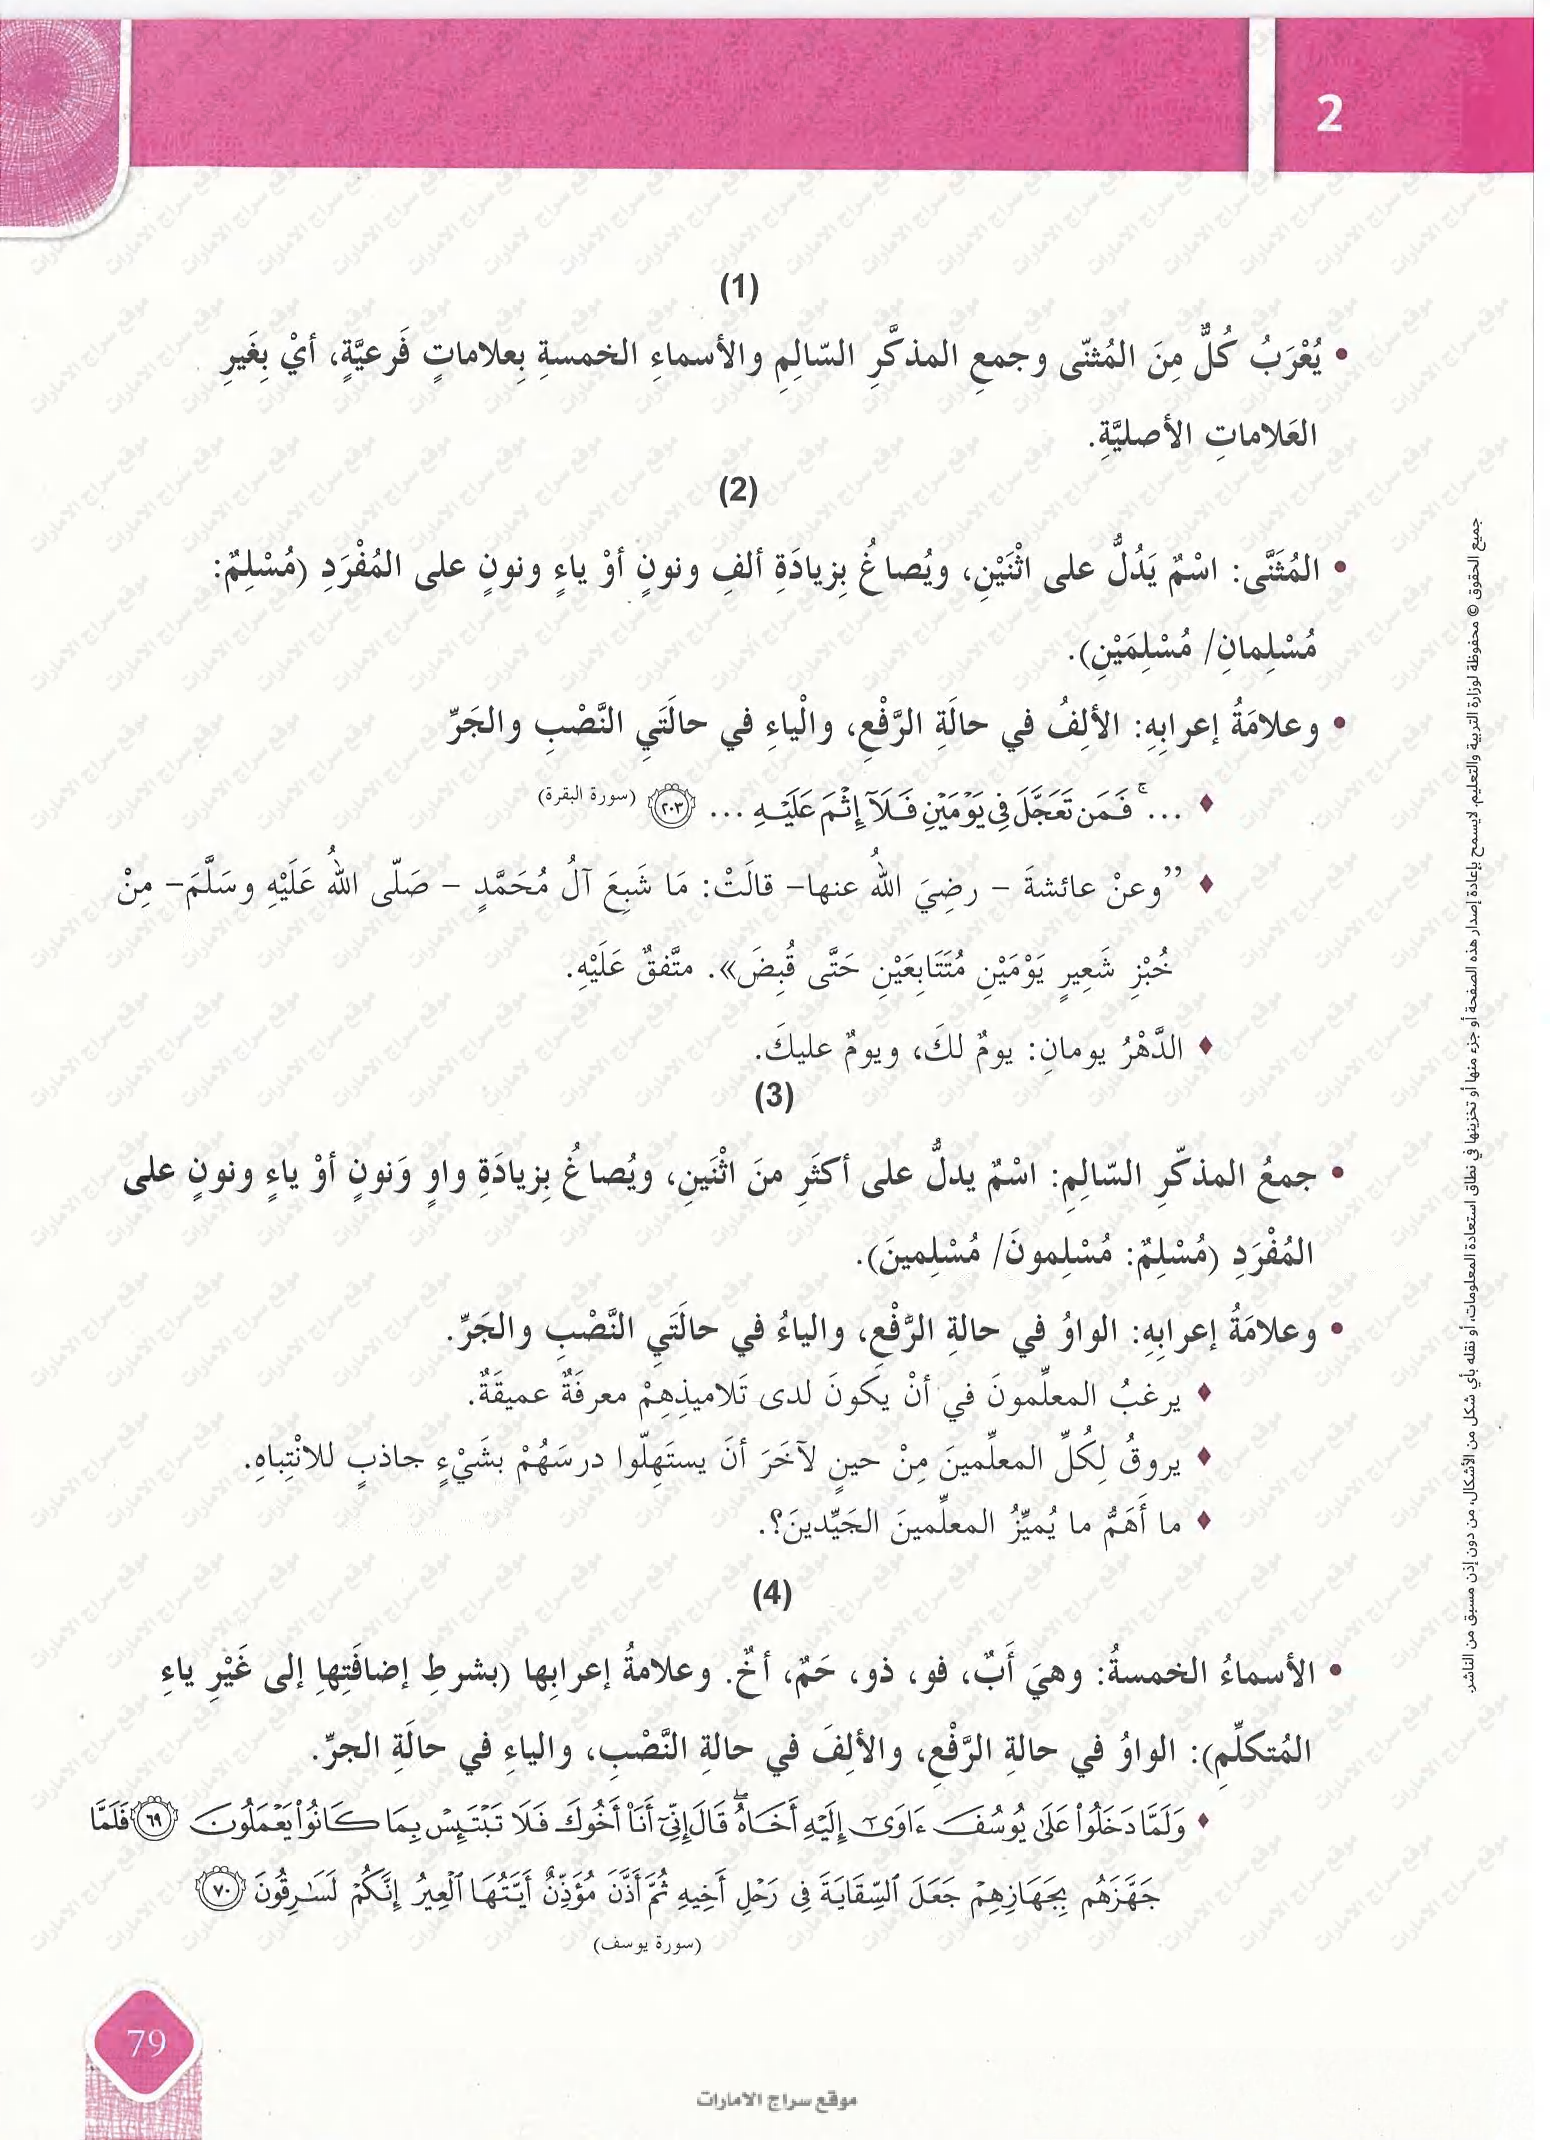 2
(1)
• يُعْرَبُ كُلٌّ مِنَ المُثنّى وجمعِ المذكَّرِ السّالِمِ والأسماءِ الخمسةِ بِعلاماتٍ فَرعيَّةٍ، أيْ بِغَيرِ
العَلاماتِ الأصليَّةِ.
(2)
• المُثَنَّى: اسْمٌ يَدُلُّ على اثْنَيْنِ، ويُصاغُ بِزيادَةِ ألفِ ونونٍ أوْ ياءٍ ونونٍ على المُفْرَدِ (مُسْلِمٌ:
مُسْلِمانِ/ مُسْلِمَيْنِ).
• وعلامَةُ إعرابِهِ: الألِفُ في حالَةِ الرَّفْعِ، والْياءِ في حالَتَيِ النَّصْبِ والجَرِّ
♦ ... ۚ فَمَن تَعَجَّلَ فِي يَوْمَيْنِ فَلَآ إِثْمَ عَلَيْهِ ... ٢٠٣ (سورة البقرة)
♦ ”وعنْ عائشةَ - رضِيَ اللهُ عنها- قالَتْ: مَا شَبِعَ آلُ مُحَمَّدٍ - صَلّى اللهُ عَلَيْهِ وسَلَّمَ- مِنْ
خُبْزِ شَعِيرٍ يَوْمَيْنِ مُتَتَابِعَيْنِ حَتَّى قُبِضَ». متَّفقٌ عَلَيْهِ.
♦ الدَّهْرُ يومانِ: يومٌ لكَ، ويومٌ عليكَ.
(3)
• جمعُ المذكّرِ السّالِمِ: اسْمٌ يدلُّ على أكثَرِ منَ اثْنَينِ، ويُصاغُ بِزيادَةِ واوٍ وَنونٍ أوْ ياءٍ ونونٍ على
المُفْرَدِ (مُسْلِمٌ: مُسْلِمونَ/ مُسْلِمينَ).
• وعلامَةُ إعرابِهِ: الواوُ في حالةِ الرَّفْعِ، والياءُ في حالَتَيِ النَّصْبِ والجَرِّ.
♦ يرغبُ المعلِّمونَ في أنْ يكونَ لدى تَلاميذِهِمْ معرفَةٌ عميقَةٌ.
♦ يروقُ لِكُلِّ المعلِّمينَ مِنْ حينٍ لآخَرَ أنَ يستَهِلّوا درسَهُمْ بشَيْءٍ جاذبٍ للانْتِباهِ.
♦ ما أَهَمُّ ما يُميِّزُ المعلِّمينَ الجَيِّدينَ؟.
(4)
• الأسماءُ الخمسةُ: وهيَ أَبٌ، فو، ذو، حَمٌ، أخٌ. وعلامةُ إعرابِها (بشرطِ إضافَتِها إلى غَيْرِ ياءِ
المُتكلِّمِ): الواوُ في حالةِ الرَّفْعِ، والألِفَ في حالةِ النَّصْبِ، والياءِ في حالَةِ الجرِّ.
♦ وَلَمَّا دَخَلُواْ عَلَىٰ يُوسُفَ ءَاوَىٰٓ إِلَيْهِ أَخَاهُۖ قَالَ إِنِّيٓ أَنَا۠ أَخُوكَ فَلَا تَبْتَئِسْ بِمَا كَانُواْ يَعْمَلُونَ ٦٩ فَلَمَّا
جَهَّزَهُم بِجَهَازِهِمْ جَعَلَ ٱلسِّقَايَةَ فِي رَحْلِ أَخِيهِ ثُمَّ أَذَّنَ مُؤَذِّنٌ أَيَّتُهَا ٱلْعِيرُ إِنَّكُمْ لَسَٰرِقُونَ ٧٠
(سورة يوسف)
جميع الحقوق © محفوظة لوزارة التربية والتعليم. لايسمح بإعادة إصدار هذه الصفحة أو جزء منها أو تخزينها في نطاق استعادة المعلومات، أو نقله بأي شكل من الأشكال، من دون إذن مسبق من الناشر.
79
موقع سراج الامارات